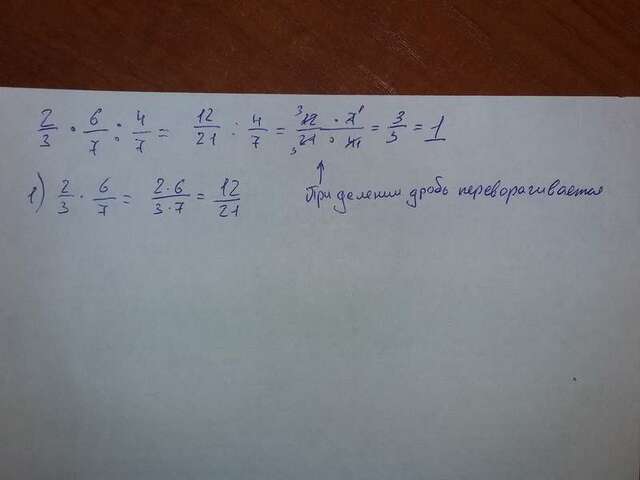 2/3 · 6/7 : 4/7 = 12/21 : 4/7 = 3 12 · 7 1 / 3 21 · 4 1 = 3/3 = 1
1) 2/3 · 6/7 = 2·6/3·7 = 12/21
При делении дробь переворачивается